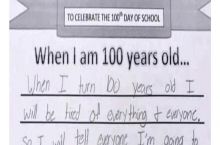 TO CELEBRATE THE 100th DAY OF SCHOOL
When I am 100 years old...
When I turn 100 years old I
will be tired of everything & everyone.
So I will tell everyone I'm going to